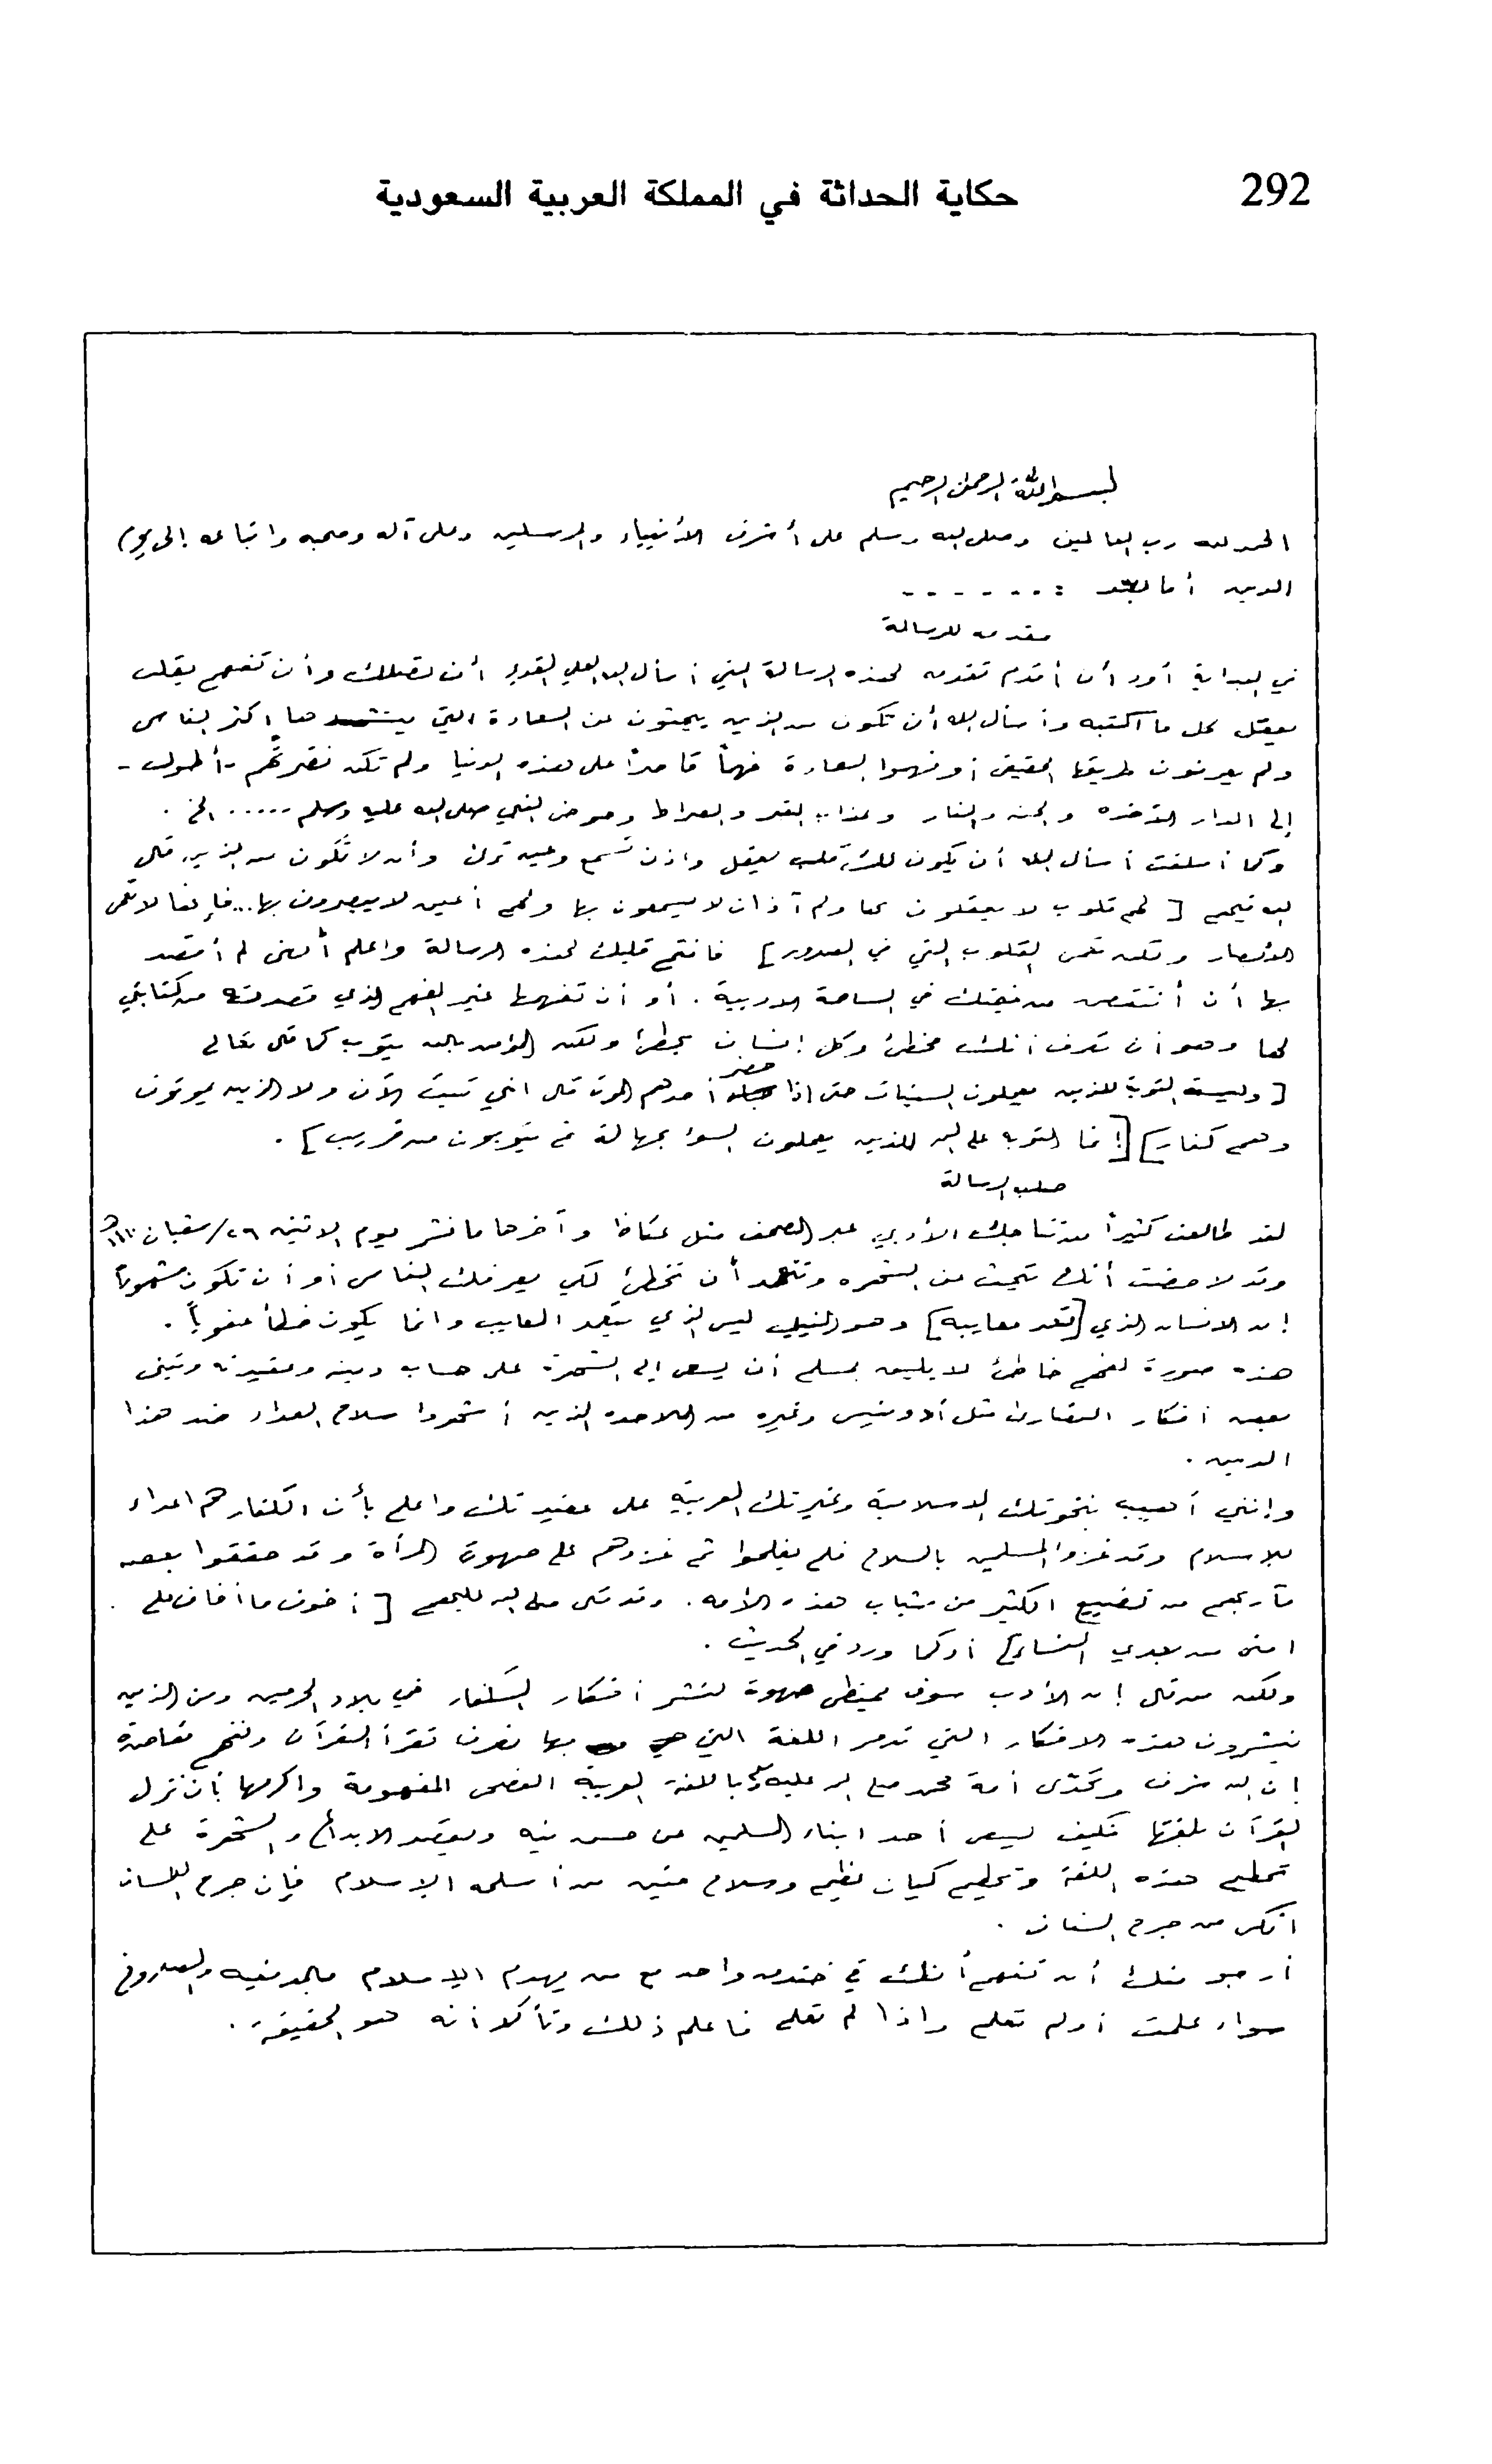 292
حكاية الحداثة في المملكة العربية السعودية
بسم الله الرحمن الرحيم
الحمد لله رب العالمين وصلى الله وسلم على أشرف الأنبياء والمرسلين وعلى آله وصحبه واتباعه إلى يوم
الدين أما بعد : . . - - - -
مقدمه للرسالة
في البداية أود أن أقدم تقدمه لهذه الرسالة التي أسأل الله العلي القوي أن تصلك وأن تفهم بقلب
يعقل كل ما اكتبه وأسأل الله أن تكون من الذين يبحثون عن السعادة التي ينشدها اكثر الناس
ولم يعرفون طريقها الحقيقي أو فهموا السعادة فهماً قاصراً على هذه الدنيا ولم تكن نظرتهم - أطول -
إلى الدار الآخره والجنه والنار وعذاب القبر والصراط وحوض النبي صلى الله عليه وسلم ..... الخ .
وكما أسلفت أسأل الله أن يكون لك قلب يعقل واذن تسمع وعين ترى وأن لا تكون من الذين قال
الله فيهم [ لهم قلوب لا يعقلون بها ولهم آذان لا يسمعون بها ولهم أعين لا يبصرون بها... فإنها لا تعمى
الأبصار ولكن تعمى القلوب التي في الصدور ] فافتح قلبك لهذه الرسالة واعلم أنني لم أقصد
بها أن أنتقص من قيمتك في الساحة الادبية . أو أن تفهمها غير الفهم الذي قصدته من كتابتي
لها وهو أن تعرف أنك مخطئ وكل إنسان يخطئ ولكن المؤمن بالله يتوب كما قال تعالى
[ وليست التوبة للذين يعملون السيئات حتى إذا حضر أحدهم الموت قال اني تبت الآن ولا الذين يموتون
وهم كفار ] [ إنما التوبه على الله للذين يعملون السوء بجهالة ثم يتوبون من قريب ] .
صلب الرسالة
لقد طالعت كثيراً من نتاجك الأدبي عبر الصحف مثل عكاظ وآخرها ما نشر يوم الاثنين ٢٦/شعبان
وقد لاحضت أنك تبحث عن الشهره وتتعمد أن تخطئ لكي يعرفك الناس أو أن تكون مشهوراً
إن الانسان الذي [ تعد معايبه ] وهو النبيل ليس الذي يتعمد المعايب وانما يكون خطأ عفوياً .
هذه صورة لفهم خاطئ لا يليق بمسلم أن يسعى إلى الشهرة على حساب دينه وعقيدته وتبني
بعض أفكار النصارى مثل أدونيس وغيره من الملاحده الذين أشهروا سلاح العداء ضد هذا
الدين .
وإنني أهيب بنخوتك الاسلامية وغيرتك العربية على عقيدتك واعلم بأن الكفار هم اعداء
للإسلام وقد غزوا المسلمين بالسلاح فلم يفلحوا ثم غزوهم على صهوة المرأة وقد حققوا بعض
مآربهم من تضييع الكثير من شباب هذه الأمه . وقد قال صلى الله عليه وسلم [ أخوف ما أخاف على
امتي من بعدي النساء ] أو كما ورد في الحديث .
ولكن من قال إن الأدب سوف يمتطى صهوة لنشر أفكار الكفار في بلاد الحرمين ومن الذين
ينشرون هذه الافكار التي تدمر اللغة التي بها نعرف نقرأ القرآن ونفهم مقاصده
إن الله شرف وتحدّى أمة محمد صلى الله عليه وسلم باللغة العربية الفصحى المفهومة واكرمها بأن نزل
القرآن بلغتها فكيف يسعى أحد ابناء المسلمين عن حسن نيه وبقصد الابداع والشهرة على
تحطيم هذه اللغة وتحطيم كيان عظيم وسلاح متين من أسلحه الإسلام فإن جرح اللسان
انكى من جرح السنان .
أرجو منك أن تفهم أنك في خندق واحد مع من يهدم الإسلام
سواء علمت أو لم تعلم واذا لم تعلم فاعلم ذلك وتأكد أنه هو الحقيقة .